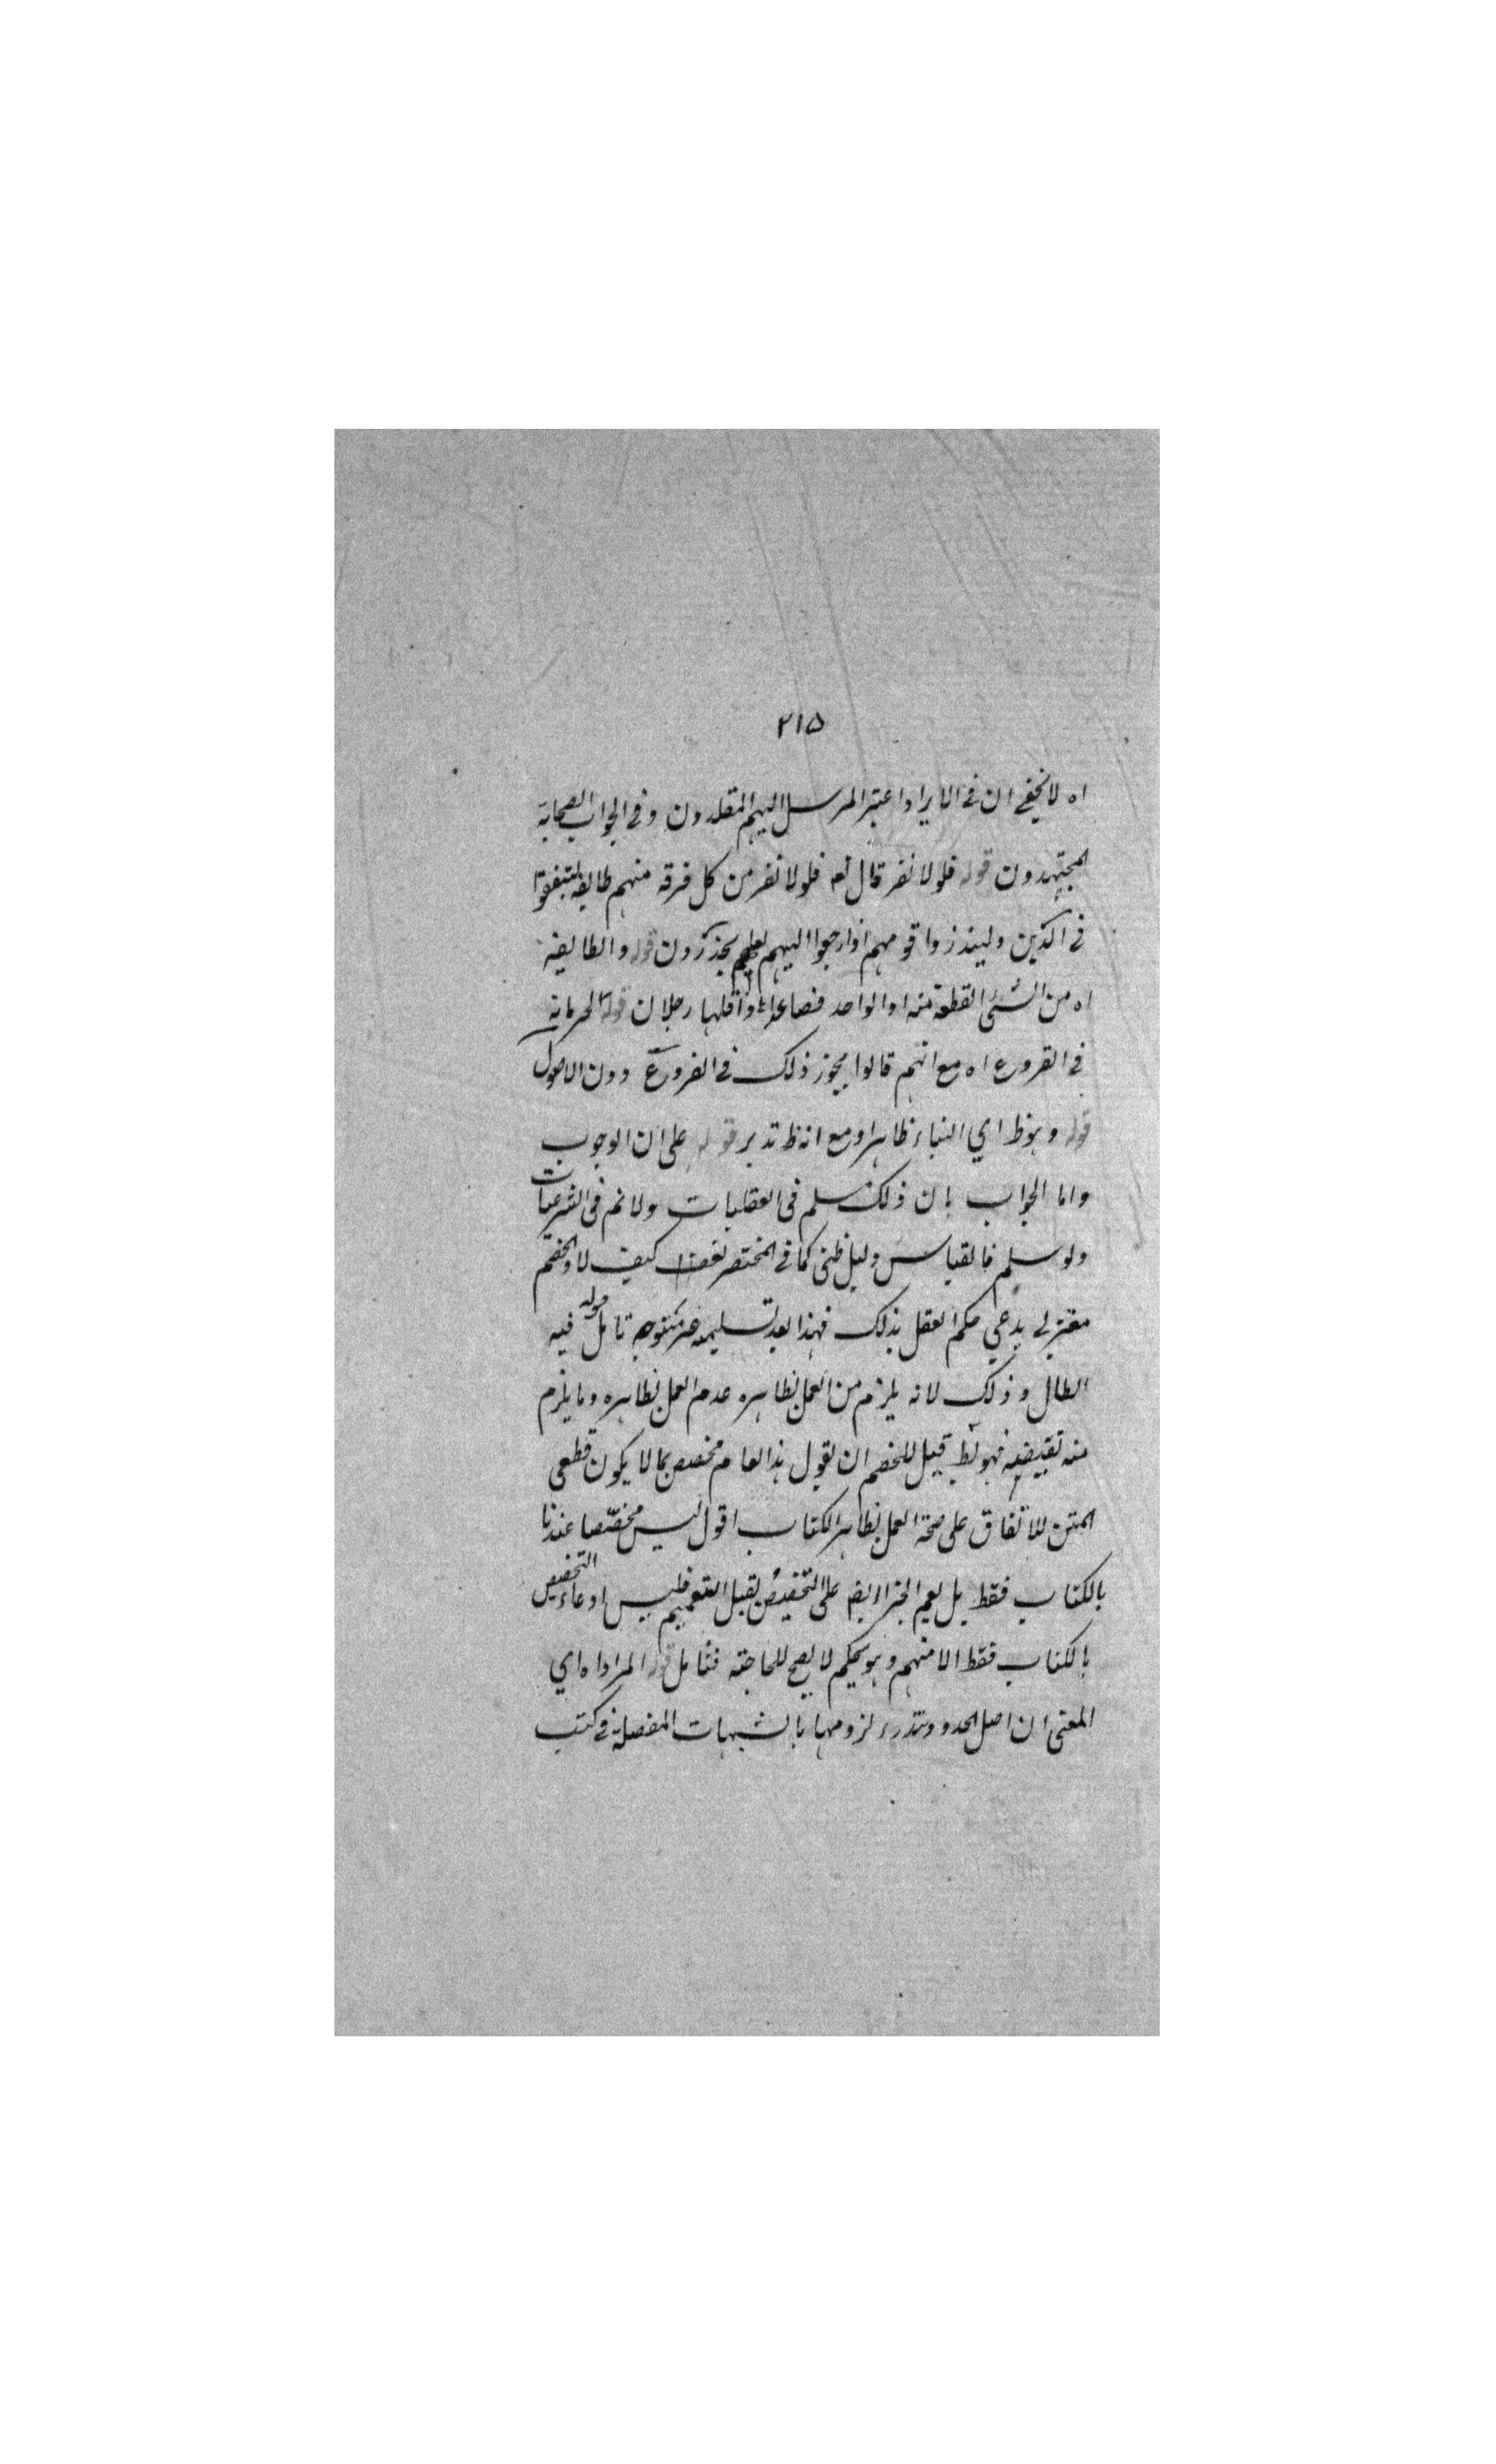 ٢١٥
اه لا يخفى ان فى الايراد اعتبر المرسل اليهم المقلدون وفى الجواب الصحابة
المجتهدون قوله فلولا نفر قال تع فلولا نفر من كل فرقة منهم طايفة ليتفقهوا
فى الدين ولينذروا قومهم اذا رجعوا اليهم لعلهم يحذرون قوله والطايفة
اه من الشئ القطعة منه او الواحد فصاعدا او اقلها رجلان قوله لجريانه
فى الفروع اه مع انهم قالوا يجوز ذلك فى الفروع دون الاصول
قوله وهو ظ اي البناء ظاهرا ومع انه ظ تدبر قوله على ان الوجوب
واما الجواب بان ذلك مسلم فى العقليات ولا نم فى الشرعيات
ولو سلم فالقياس دليل ظنى كما فى المختصر كيف لا والخصم
معتزلي يدعي حكم العقل بذلك فهذا بعد تسليمه غير متوجه تامل قوله فيه
ابطال وذلك لانه يلزم من العمل بظاهره عدم العمل بظاهره وما يلزم
منه نقيضه فهو بط قيل للخصم ان يقول هذا العام مخصص بما لا يكون قطعى
المتن للاتفاق على صحة العمل بظاهر الكتاب اقول ليس مخصصا عندنا
بالكتاب فقط بل يعم الخبر ايض على التخصيص يقبل التعميم فليس ادعاء التخصيص
بالكتاب فقط الا منهم وهو تحكم لا يصح للحاجة فتامل قوله المراد اه اي
المعنى ان اصل الحدود وتندرء لزومها بالشبهات المفصلة فى كتب